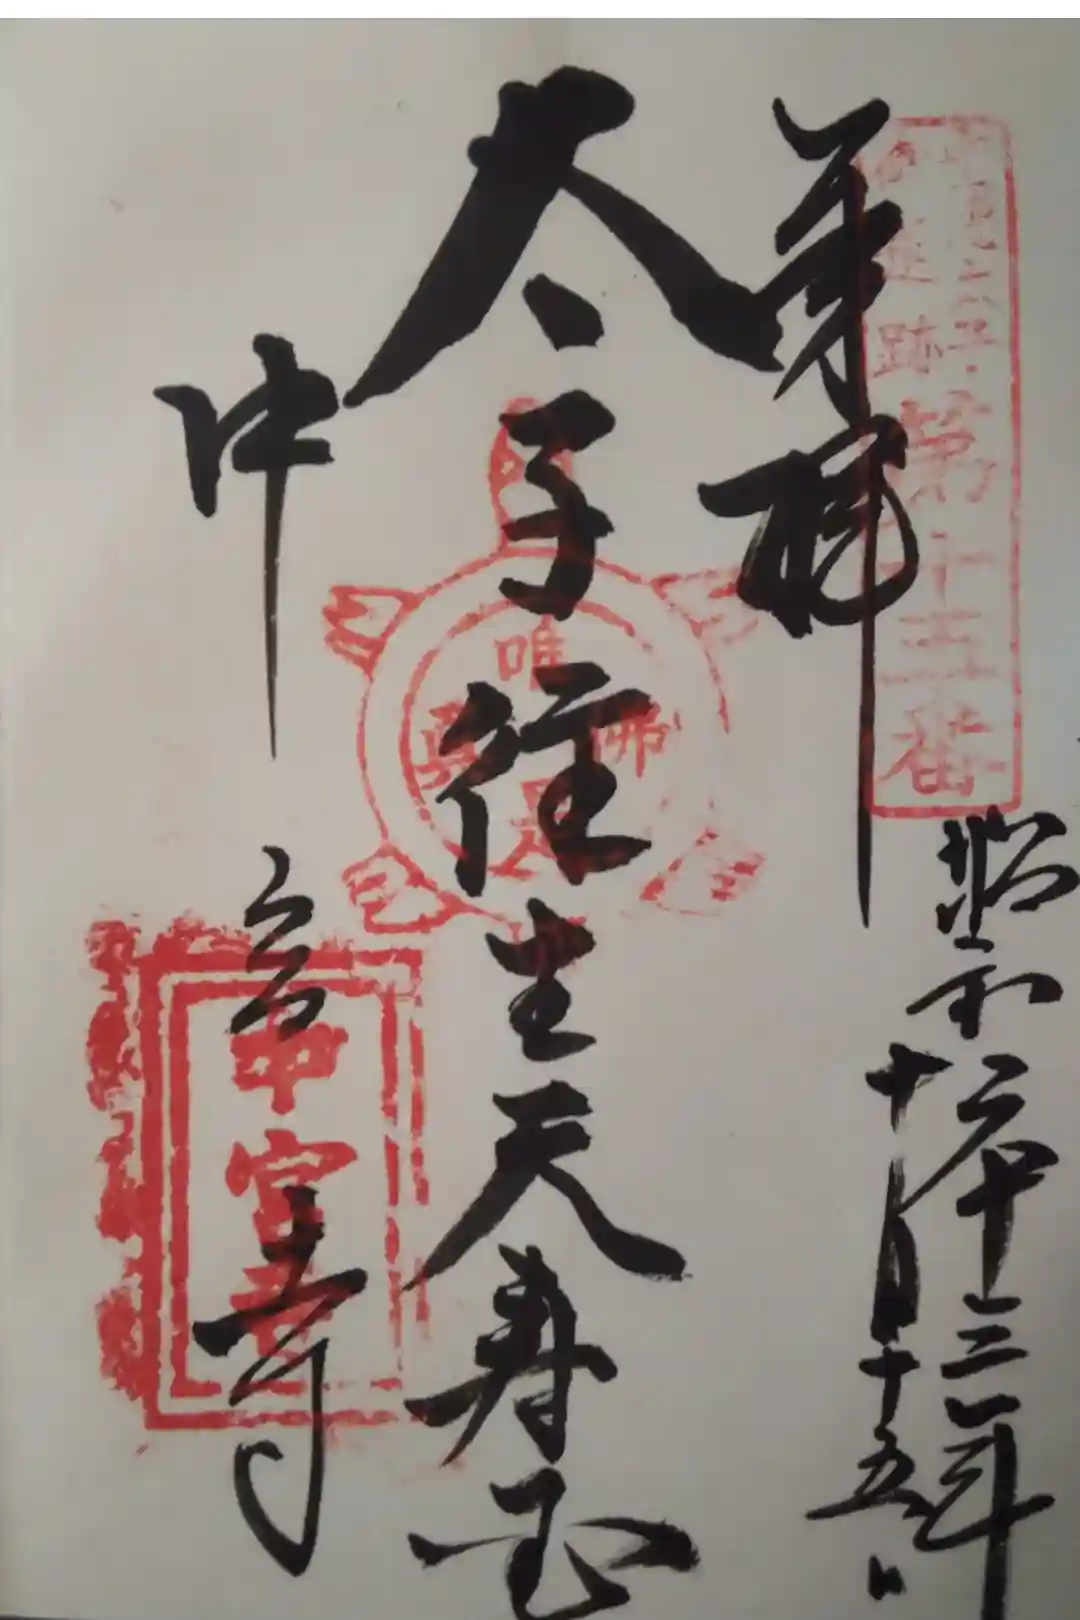 奉拝
昭和六十三年
十月十五日
太子往生天寿国
中宮寺
聖徳太子
御遺跡
第十五番
唯佛是真
中宮寺